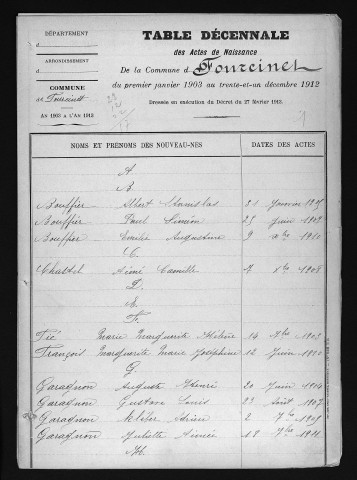 DÉPARTEMENT
TABLE DÉCENNALE
d
des Actes de Naissance
ARRONDISSEMENT
d
De la Commune d Fourcinet
COMMUNE
de Fourcinet
du premier janvier 1903 au trente-et-un décembre 1912
AN 1903 A L'AN 1912
Dressée en exécution du Décret du 27 février 1913.
NOMS ET PRÉNOMS DES NOUVEAU-NÉS
DATES DES ACTES
A
B.
Bouffier Albert Stanislas 31 Janvier
Bouffier Paul Siméon 25 Juin
Bouffier Emilie Augustine 9 Xbre 1910
C.
Chastel Aimé Camille 7 Xbre 1908
D.
E.
F.
Fié Marie Marguerite Hélène 14 9bre 1903
François Marguerite Marie Joséphine 12 Juin 1910
G.
Garagnon Auguste Henri 20 Juin 1904
Garagnon Gustave Louis 23 Août 1907
Garagnon Kléber Adrien 2 7bre
Garagnon Juliette Aimée 18 7bre 1911
H.